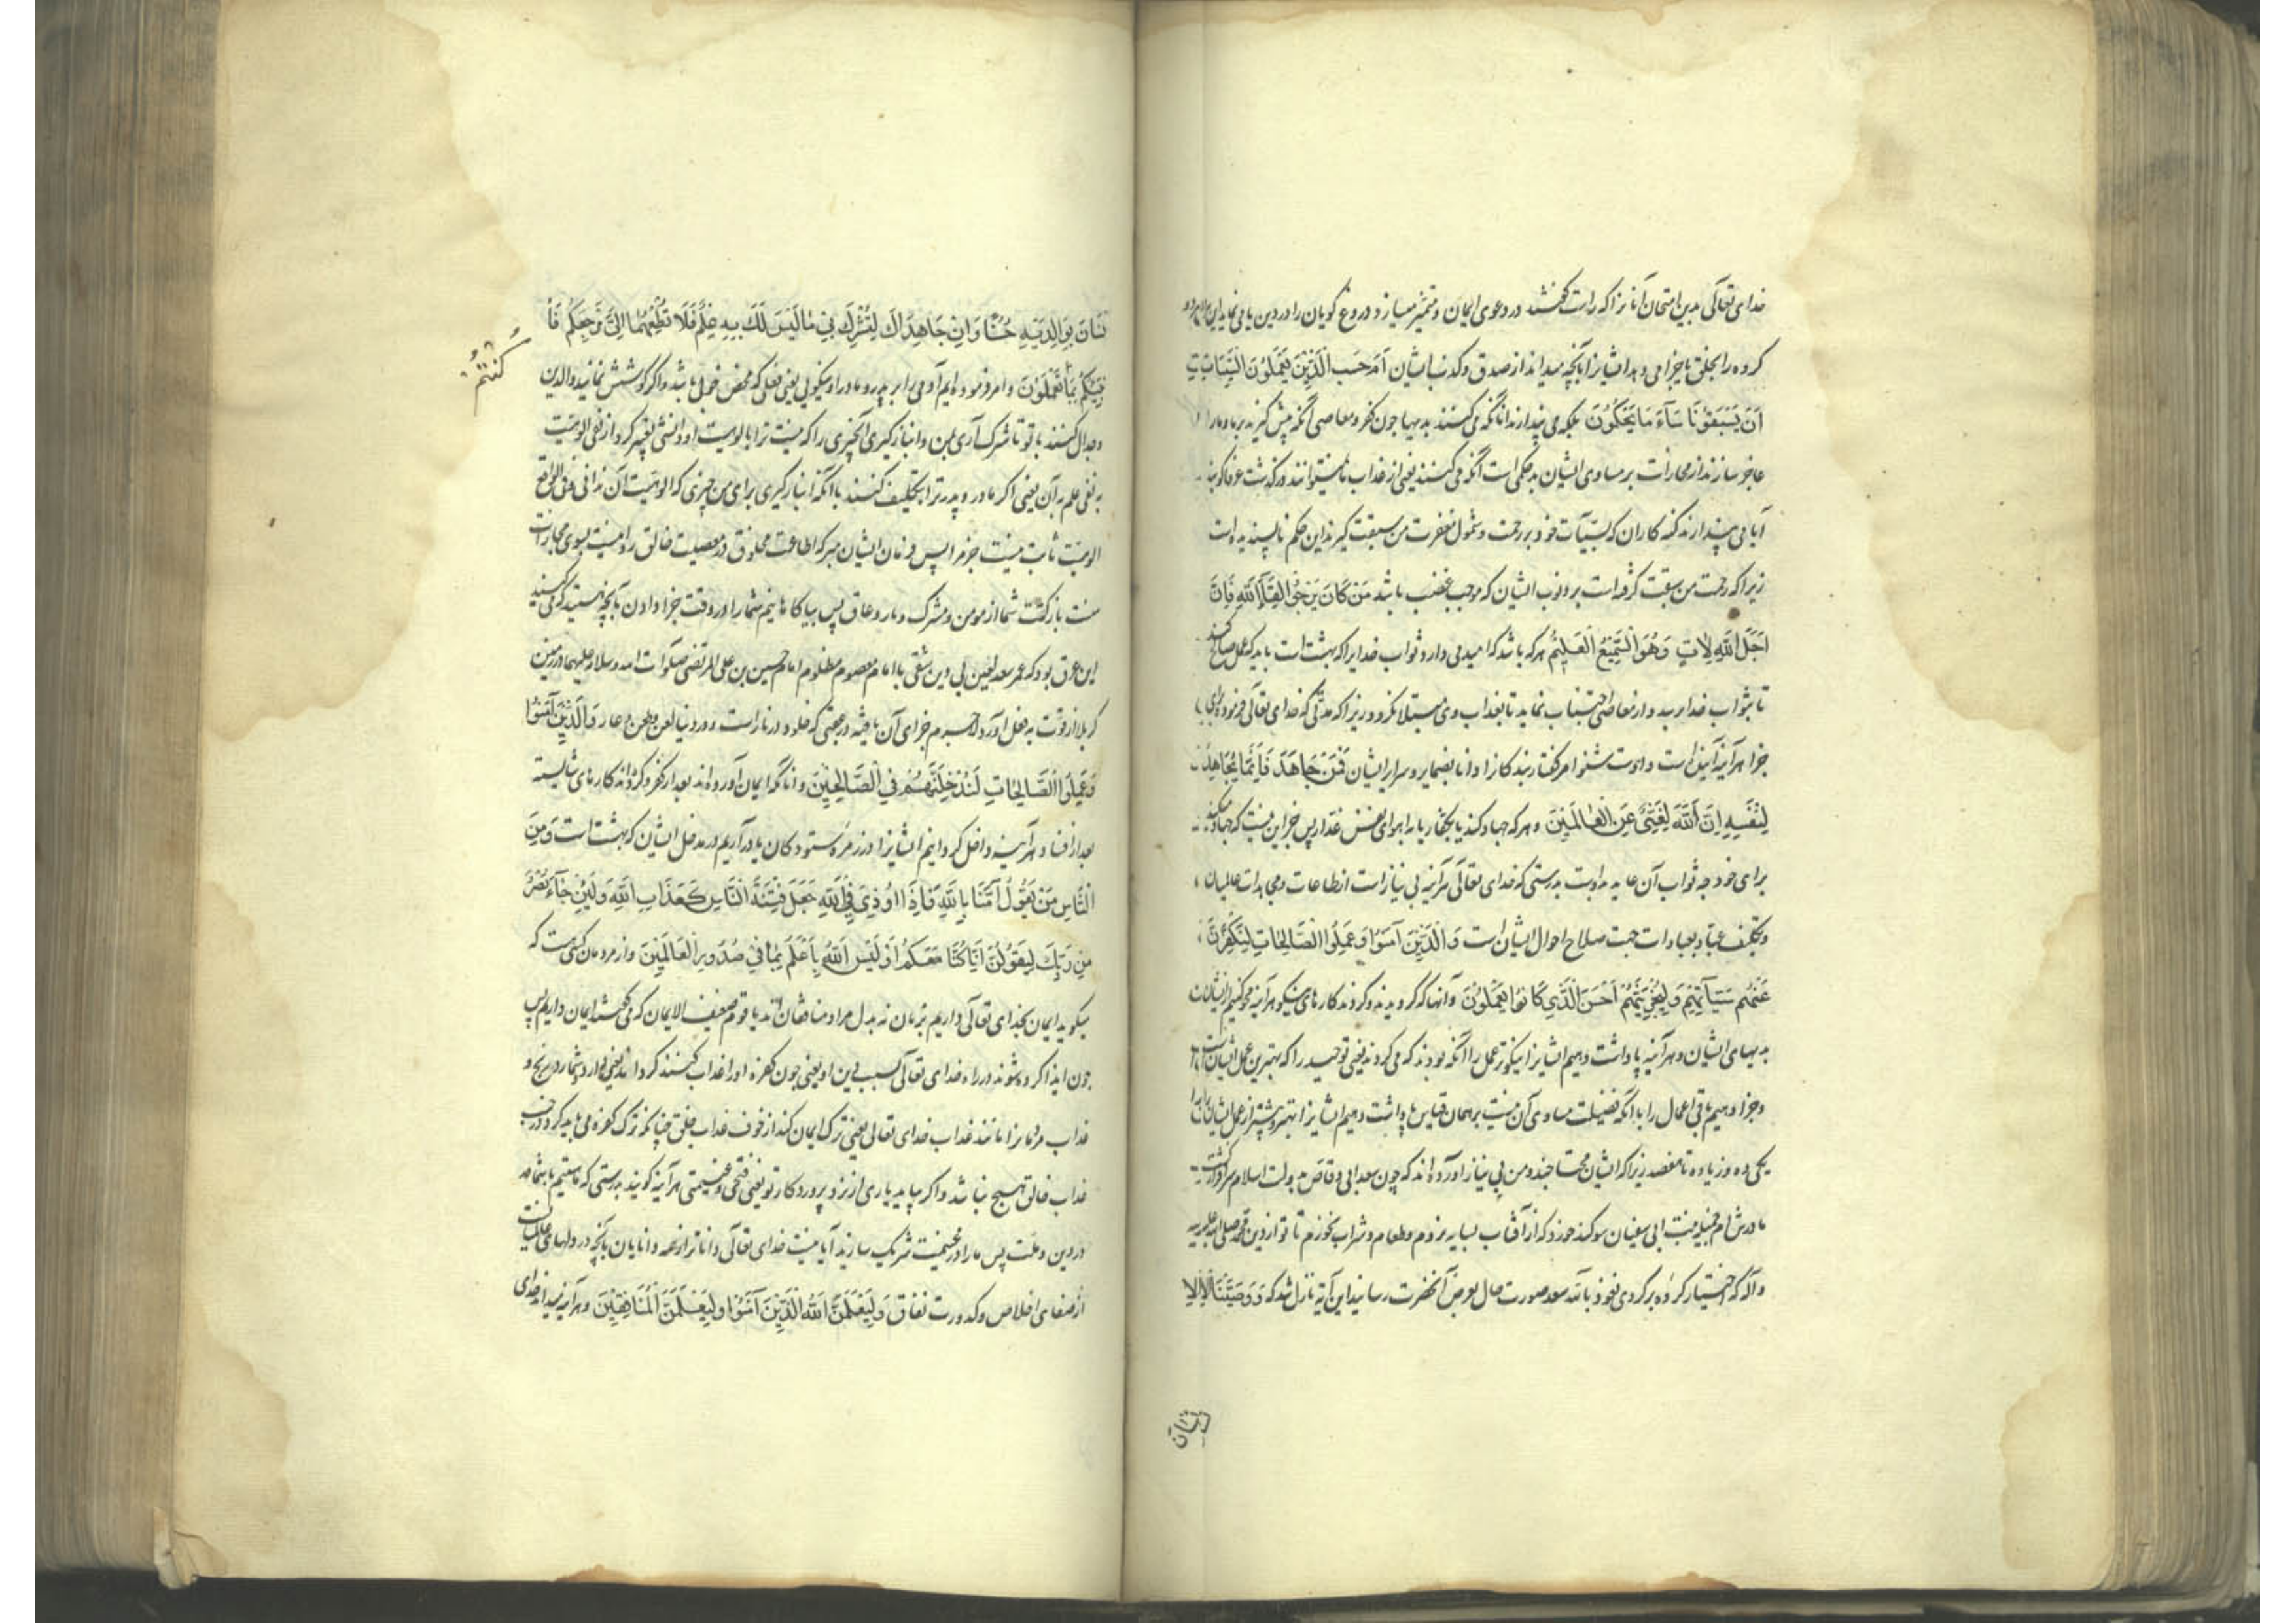 خدای تعالی بدین امتحان آنانرا که راست گفتند در دعوی ایمان و متمیز میسازد دروغ گویان را در دین
کروه را بخلق تا جزا می دهد ایشانرا بآنچه میداند از صدق و کذب ایشان اَم حَسِبَ الَّذینَ یَعمَلونَ السَّیِّئاتِ
اَن یَسبِقونا ساءَ ما یَحکُمونَ بلکه می پندارند آنانکه می کنند بدیها چون کفر و معاصی آنکه پیش گیرند بر ما و مارا
عاجز سازند از مجازات بر مساوی ایشان بد حکمی است آنکه می کنند یعنی از عذاب ما نمیتوانند در گذشت
آیا می پندارند گنه کاران که بسیّآت خود بر رحمت و شمول مغفرت من سبقت گیرند این حکم ناپسندیده است
زیرا که رحمت من سبقت گرفته است بر ذنوب ایشان که موجب غضب باشد مَن کانَ یَرجوا لِقاءَ اللهِ فَاِنَّ
اَجَلَ اللهِ لَاتٍ وَهُوَ السَّمیعُ العَلیمُ هر که باشد که امید می دارد ثواب خدایرا که بهشت است باید که عمل صالح کند
تا بثواب خدا رسد و از معاصی اجتناب نماید تا بعذاب وی مبتلا نگردد زیرا که مدتی که خدای تعالی فرموده برای
جزا هر آینه آینده است و اوست شنوا مر گفتار بندگانرا و دانا بضمایر و سرایر ایشان وَمَن جاهَدَ فَاِنَّما یُجاهِدُ
لِنَفسِهِ اِنَّ اللهَ لَغَنیٌّ عَنِ العالَمینَ و هر که جهاد کند با کفار یا با هوای نفس غدار پس جز این نیست که جهاد میکند
برای خود چه ثواب آن عاید بدوست بدرستی که خدای تعالی هر آینه بی نیاز است از طاعات و مجاهدات عالمیان
و تکلیف عباد بعبادات جهت صلاح احوال ایشان است وَالَّذینَ آمَنوا وَعَمِلُوا الصّالِحاتِ لَنُکَفِّرَنَّ
عَنهُم سَیِّئاتِهِم وَلَنَجزِیَنَّهُم اَحسَنَ الَّذی کانوا یَعمَلونَ و آنها که گرویدند و کردند کارهای نیکو هر آینه محو کنیم از ایشان
بدیهای ایشان و هر آینه پاداشت دهیم ایشانرا نیکوتر عمل را آنکه بودند که می کردند یعنی توحید را که بهترین عمل ایشان است
و جزا دهیم باقی اعمال را با آنکه فضیلت مساوی آن نیست بر همان قیاس یا پاداشت دهیم ایشانرا بهتر و بیشتر از عمل ایشان
یکی ده و زیاده تا هفتصد زیرا که ایشان محتاجند و من بی نیاز آورده اند که چون سعد ابی وقاص بدولت اسلام
مادرش بنت ابی سفیان سوکند خورد که از آفتاب بسایه نروم و طعام و شراب نخورم تا تو از دین محمد صلی الله علیه
و آله که اختیار کرده بر گردی نعوذ بالله سعد صورت حال بعرض آنحضرت رسانید این آیه نازل شد که وَوَصَّینَا الاِ
نسان
نسانَ بِوالِدَیهِ حُسنًا وَاِن جاهَداکَ لِتُشرِکَ بی ما لَیسَ لَکَ بِهِ عِلمٌ فَلا تُطِعهُما اِلَیَّ مَرجِعُکُم فَاُ
نَبِّئُکُم بِما تَعمَلونَ و امر فرموده ایم آدمی را بر پدر و مادر او نیکوئی یعنی فعلی که محض خوبی باشد و اگر کوشش نمایند والدین
کُنتُم
و جدال کنند با تو تا شرک آری بمن و انباز گیری آنچیزی را که نیست ترا بالوهیت او دانشی تعبیر کرد از نفی الوهیت
به نفی علم بآن یعنی اگر مادر و پدر ترا تکلیف کنند بآنکه انباز گیری برای من چیزی که الوهیت آن ندانی
الوهیت ثابت نیست جز مرا پس فرمان ایشان مبر که اطاعت مخلوق در معصیت خالق روا نیست بسوی مجازات
منست بازگشت شما از مومن و مشرک و بار و عاق پس بیاگاهانیم شما را در وقت جزا دادن بآنچه هستید که می کنید
این عرق بود که عمر سعد لعین بی دین شقی با امام معصوم مظلوم امام حسین بن علی المرتضی صلوات الله و سلامه علیهما در زمین
کربلا از قوت به فعل آورد لاجرم جزای آن یافته در عقبی که خلود در نار است و در دنیا لعن و طعن و عار وَالَّذینَ آمَنوا
وَعَمِلُوا الصّالِحاتِ لَنُدخِلَنَّهُم فِی الصّالِحینَ و آنانکه ایمان آورده اند بعد از کفر و کرده اند کارهای شایسته
بعد از فساد هر آینه داخل گردانیم ایشانرا در زمره ستودگان یا در آریم در مدخل ایشان که بهشت است وَمِنَ
النّاسِ مَن یَقولُ آمَنّا بِاللهِ فَاِذا اوذِیَ فِی اللهِ جَعَلَ فِتنَةَ النّاسِ کَعَذابِ اللهِ وَلَئِن جاءَ نَصرٌ
مِن رَبِّکَ لَیَقولُنَّ اِنّا کُنّا مَعَکُم اَوَلَیسَ اللهُ بِاَعلَمَ بِما فی صُدورِ العالَمینَ و از مردمان کسی هست که
میگوید ایمان بخدای تعالی داریم بزبان نه بدل مراد منافقان اند یا قوم ضعیف الایمان که می گفتند ایمان داریم پس
چون ایذا کرده شوند در راه خدای تعالی بسبب دین او یعنی چون کفره او را عذاب کنند گرداند یعنی فرا رو شمارد رنج و
عذاب مردمانرا مانند عذاب خدای تعالی یعنی ترک ایمان کند از خوف عذاب خلق چنانکه ترک کفره می باید کرد
عذاب خالق هیچ نباشد و اگر بیاید یاری از نزد پروردگار تو یعنی فتحی و غنیمتی هر آینه گویند بدرستی که ما هستیم با شما
در دین و ملت پس ما را در غنیمت شریک سازید آیا نیست خدای تعالی داناتر از همه دانایان بآنچه در دلهای عالمیانست
از صفای اخلاص و کدورت نفاق وَلَیَعلَمَنَّ اللهُ الَّذینَ آمَنوا وَلَیَعلَمَنَّ المُنافِقینَ و هر آینه میداند خدای